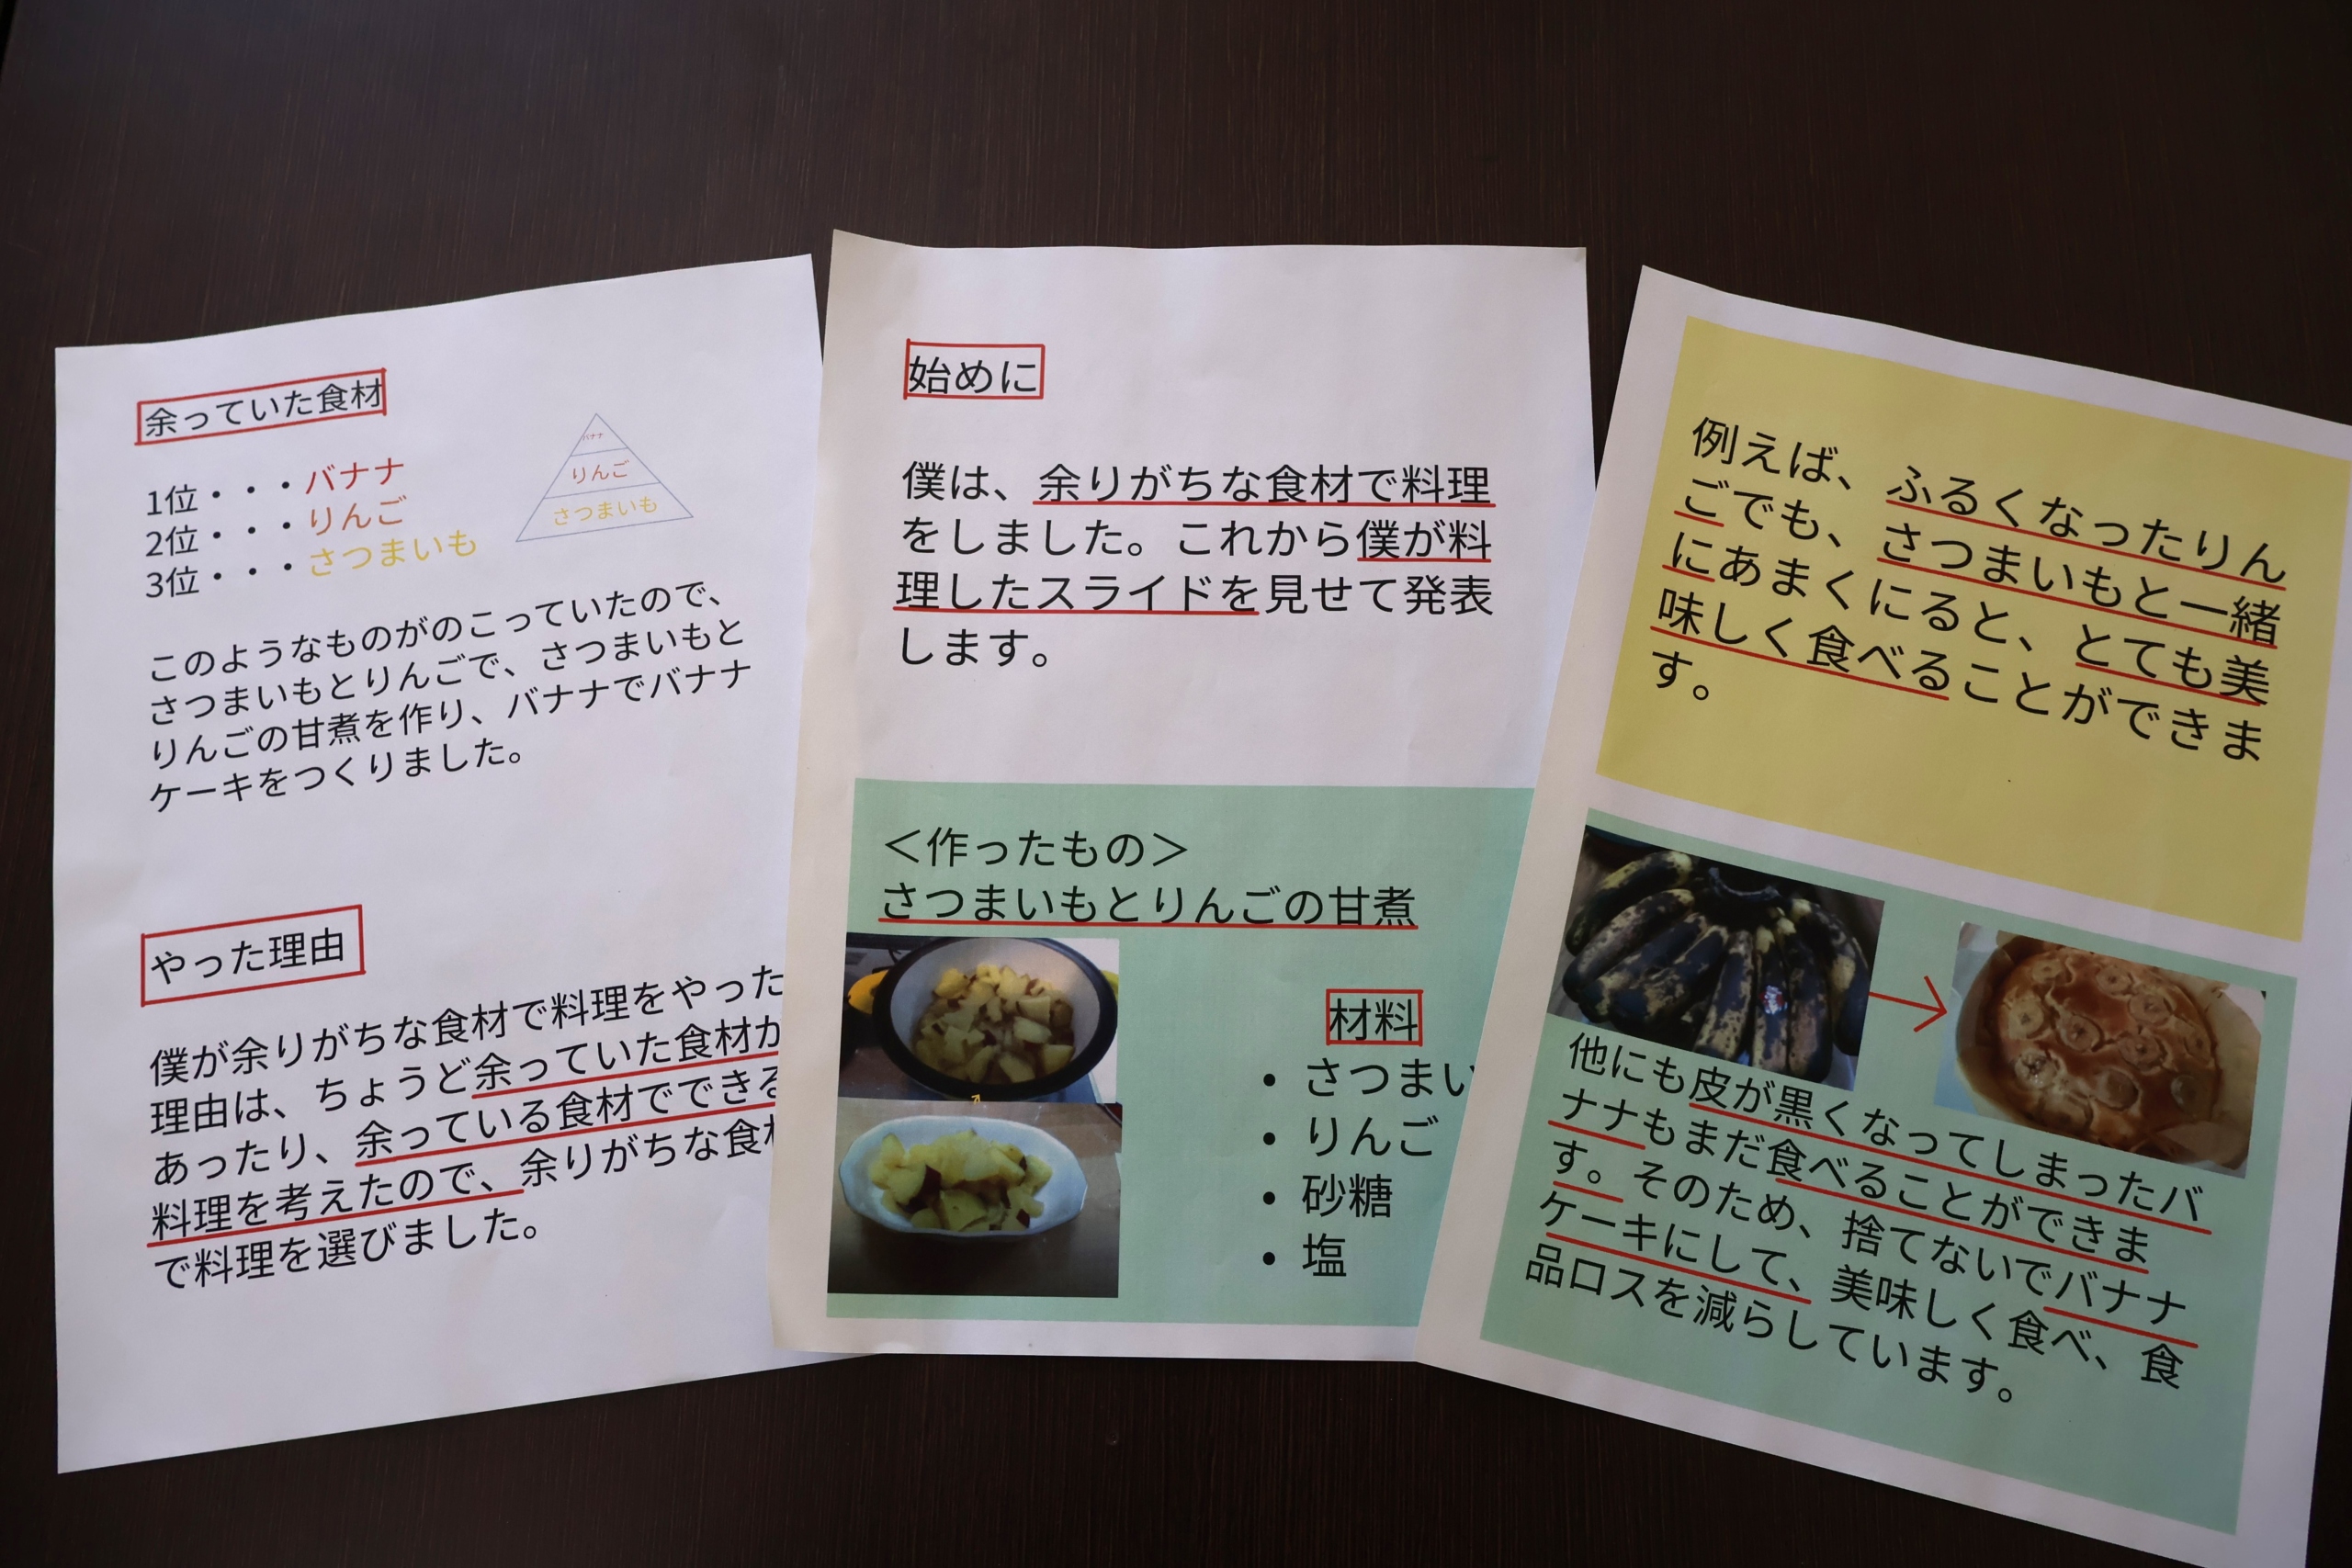 余っていた食材
1位・・・バナナ
2位・・・りんご
3位・・・さつまいも
バナナ
りんご
さつまいも
このようなものがのこっていたので、
さつまいもとりんごで、さつまいもと
りんごの甘煮を作り、バナナでバナナ
ケーキをつくりました。
やった理由
僕が余りがちな食材で料理をやった
理由は、ちょうど余っていた食材が
あったり、余っている食材でできる
料理を考えたので、余りがちな食材
で料理を選びました。
始めに
僕は、余りがちな食材で料理
をしました。これから僕が料
理したスライドを見せて発表
します。
<作ったもの>
さつまいもとりんごの甘煮
材料
• さつまい
• りんご
• 砂糖
• 塩
例えば、ふるくなったりん
ごでも、さつまいもと一緒
にあまくにると、とても美
味しく食べることができま
す。
他にも皮が黒くなってしまったバ
ナナもまだ食べることができま
す。そのため、捨てないでバナナ
ケーキにして、美味しく食べ、食
品ロスを減らしています。